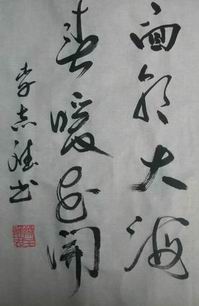 面朝大海
春暖花开
李志强书